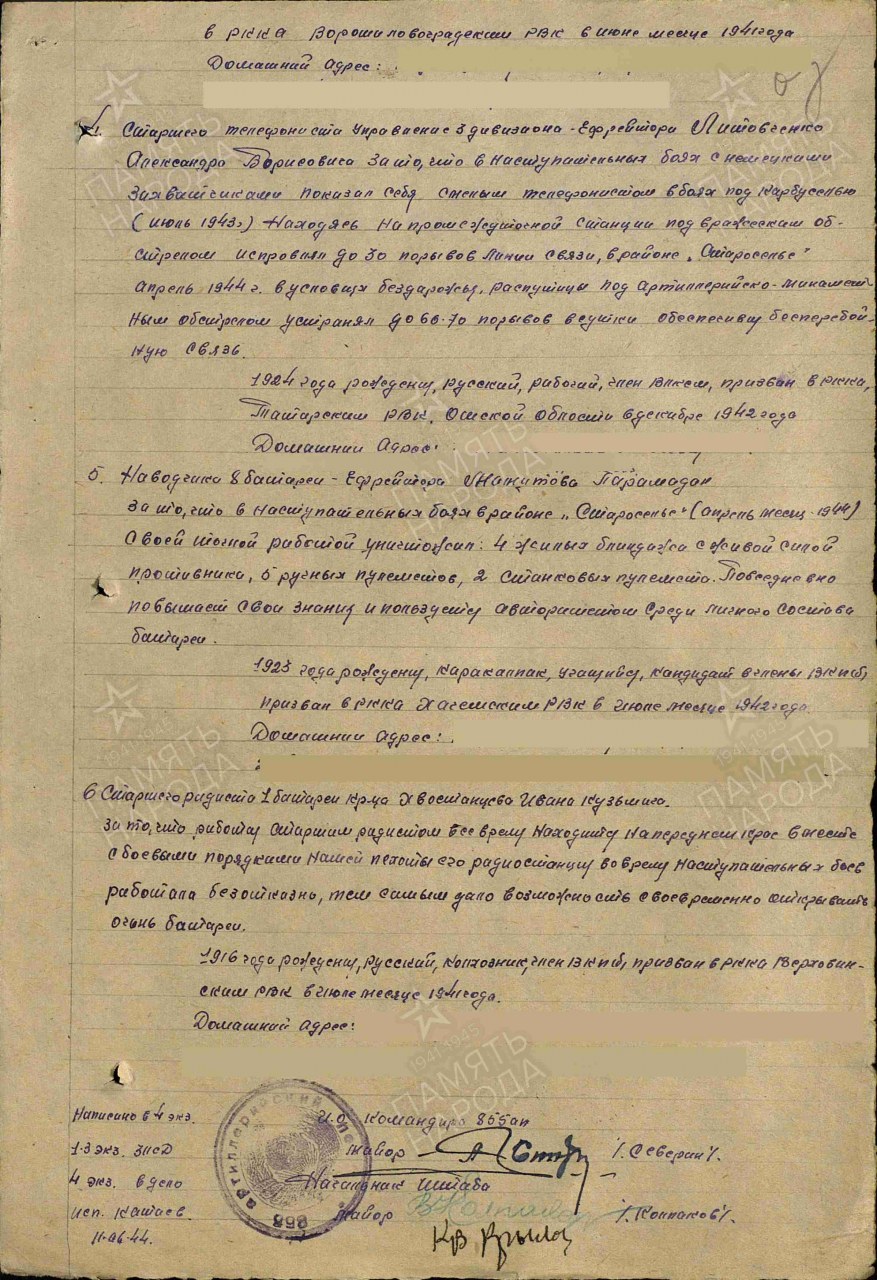 в РККА Ворошиловоградским РВК в июне месяце 1941 года
Домашний адрес:
4. Старшего телефониста Управление 3 дивизиона - Ефрейтора Литовченко
Александра Борисовича за то, что в наступательных боях с немецкими
захватчиками показал себя смелым телефонистом в боях под Карбуселью
(июль 1943г) Находясь на промежуточной станции под вражеским об-
стрелом исправлял до 30 порывов линии связи, в районе "Староселье"
апрель 1944 г. в условиях бездорожья, распутицы под артиллерийско-минамет-
ным обстрелом устранял до 60-70 порывов в сутки обеспечивая бесперебой-
ную связь.
1924 года рождения, русский, рабочий, член ВЛКСМ, призван в РККА,
Татарским РВК, Омской области в декабре 1942 года
Домашний адрес:
5. Наводчика 8 батареи - Ефрейтора Парамадан
за то, что в наступательных боях в районе "Староселье" (апрель месяц 1944)
своей точной работой уничтожил: 4 жилых блиндажа с живой силой
противника, 5 ручных пулеметов, 2 станковых пулемета. Повседневно
повышает свои знания и пользуется авторитетом среди личного состава
батареи.
1923 года рождения, каракалпак, учащийся, кандидат в члены ВКП(б),
призван в РККА РВК в июле месяце 1942 года.
Домашний адрес:
6 Старшего радиста 1 батареи кр-ца Хвостанцева Ивана Кузьмича.
за то, что работая старшим радистом все время находится на переднем крае вместе
с боевыми порядками нашей пехоты его радиостанция во время наступательных боев
работала безотказно, тем самым дало возможность своевременно открывать
огонь батареи.
1916 года рождения, русский, колхозник, член ВКП(б), призван в РККА Верховин-
ским РВК в июле месяце 1941 года.
Домашний адрес:
Написано в 4 экз. И.О. Командира 855ап
1-3 экз. ЗПСД майор /Северин/.
4 экз. в дело Начальник штаба
исп. Катаев майор /Колпаков/.
11.06.44.
артиллерийский
855
ПАМЯТЬ
НАРОДА
1941-1945